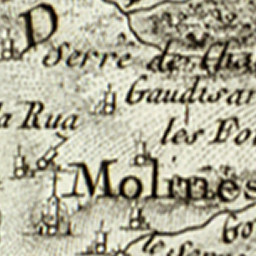 D
Serre de Cha
Gaudisar
la Rua
les Fo
Molines
Go
le